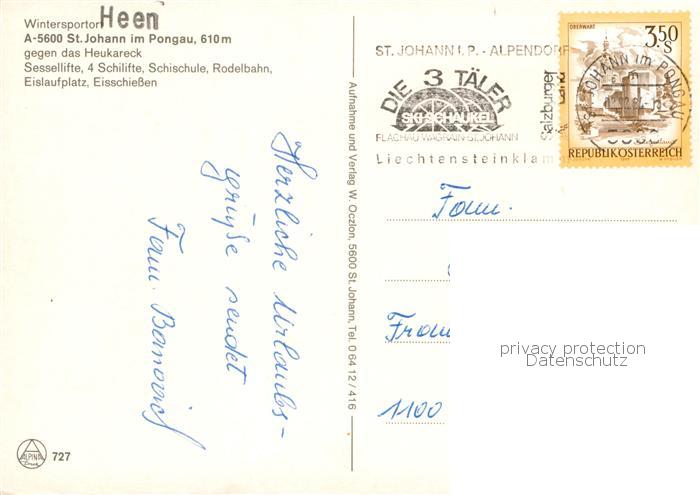 Heen
Wintersportort
A-5600 St. Johann im Pongau, 610 m
gegen das Heukareck
Sessellifte, 4 Schilifte, Schischule, Rodelbahn,
Eislaufplatz, Eisschießen
Herzliche Urlaubs-
grüße sendet
Fam.
ALPINA
727
Aufnahme und Verlag W. Oczlon, 5600 St. Johann, Tel. 0 64 12 / 416
ST. JOHANN I. P. - ALPENDORF
DIE 3 TÄLER
SKI-SCHAUKEL
FLACHAU-WAGRAIN-ST.JOHANN
Liechtensteinklam
Salzburger
JOHANN im PONGAU
OBERWART
3.50
S
REPUBLIK ÖSTERREICH
Fam.
1100
privacy protection
Datenschutz